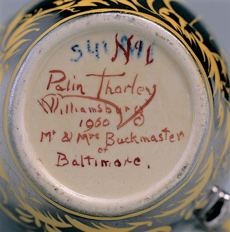 Palin Thorley
Williamsburg
1950
Mr & Mrs Buckmaster
of
Baltimore.